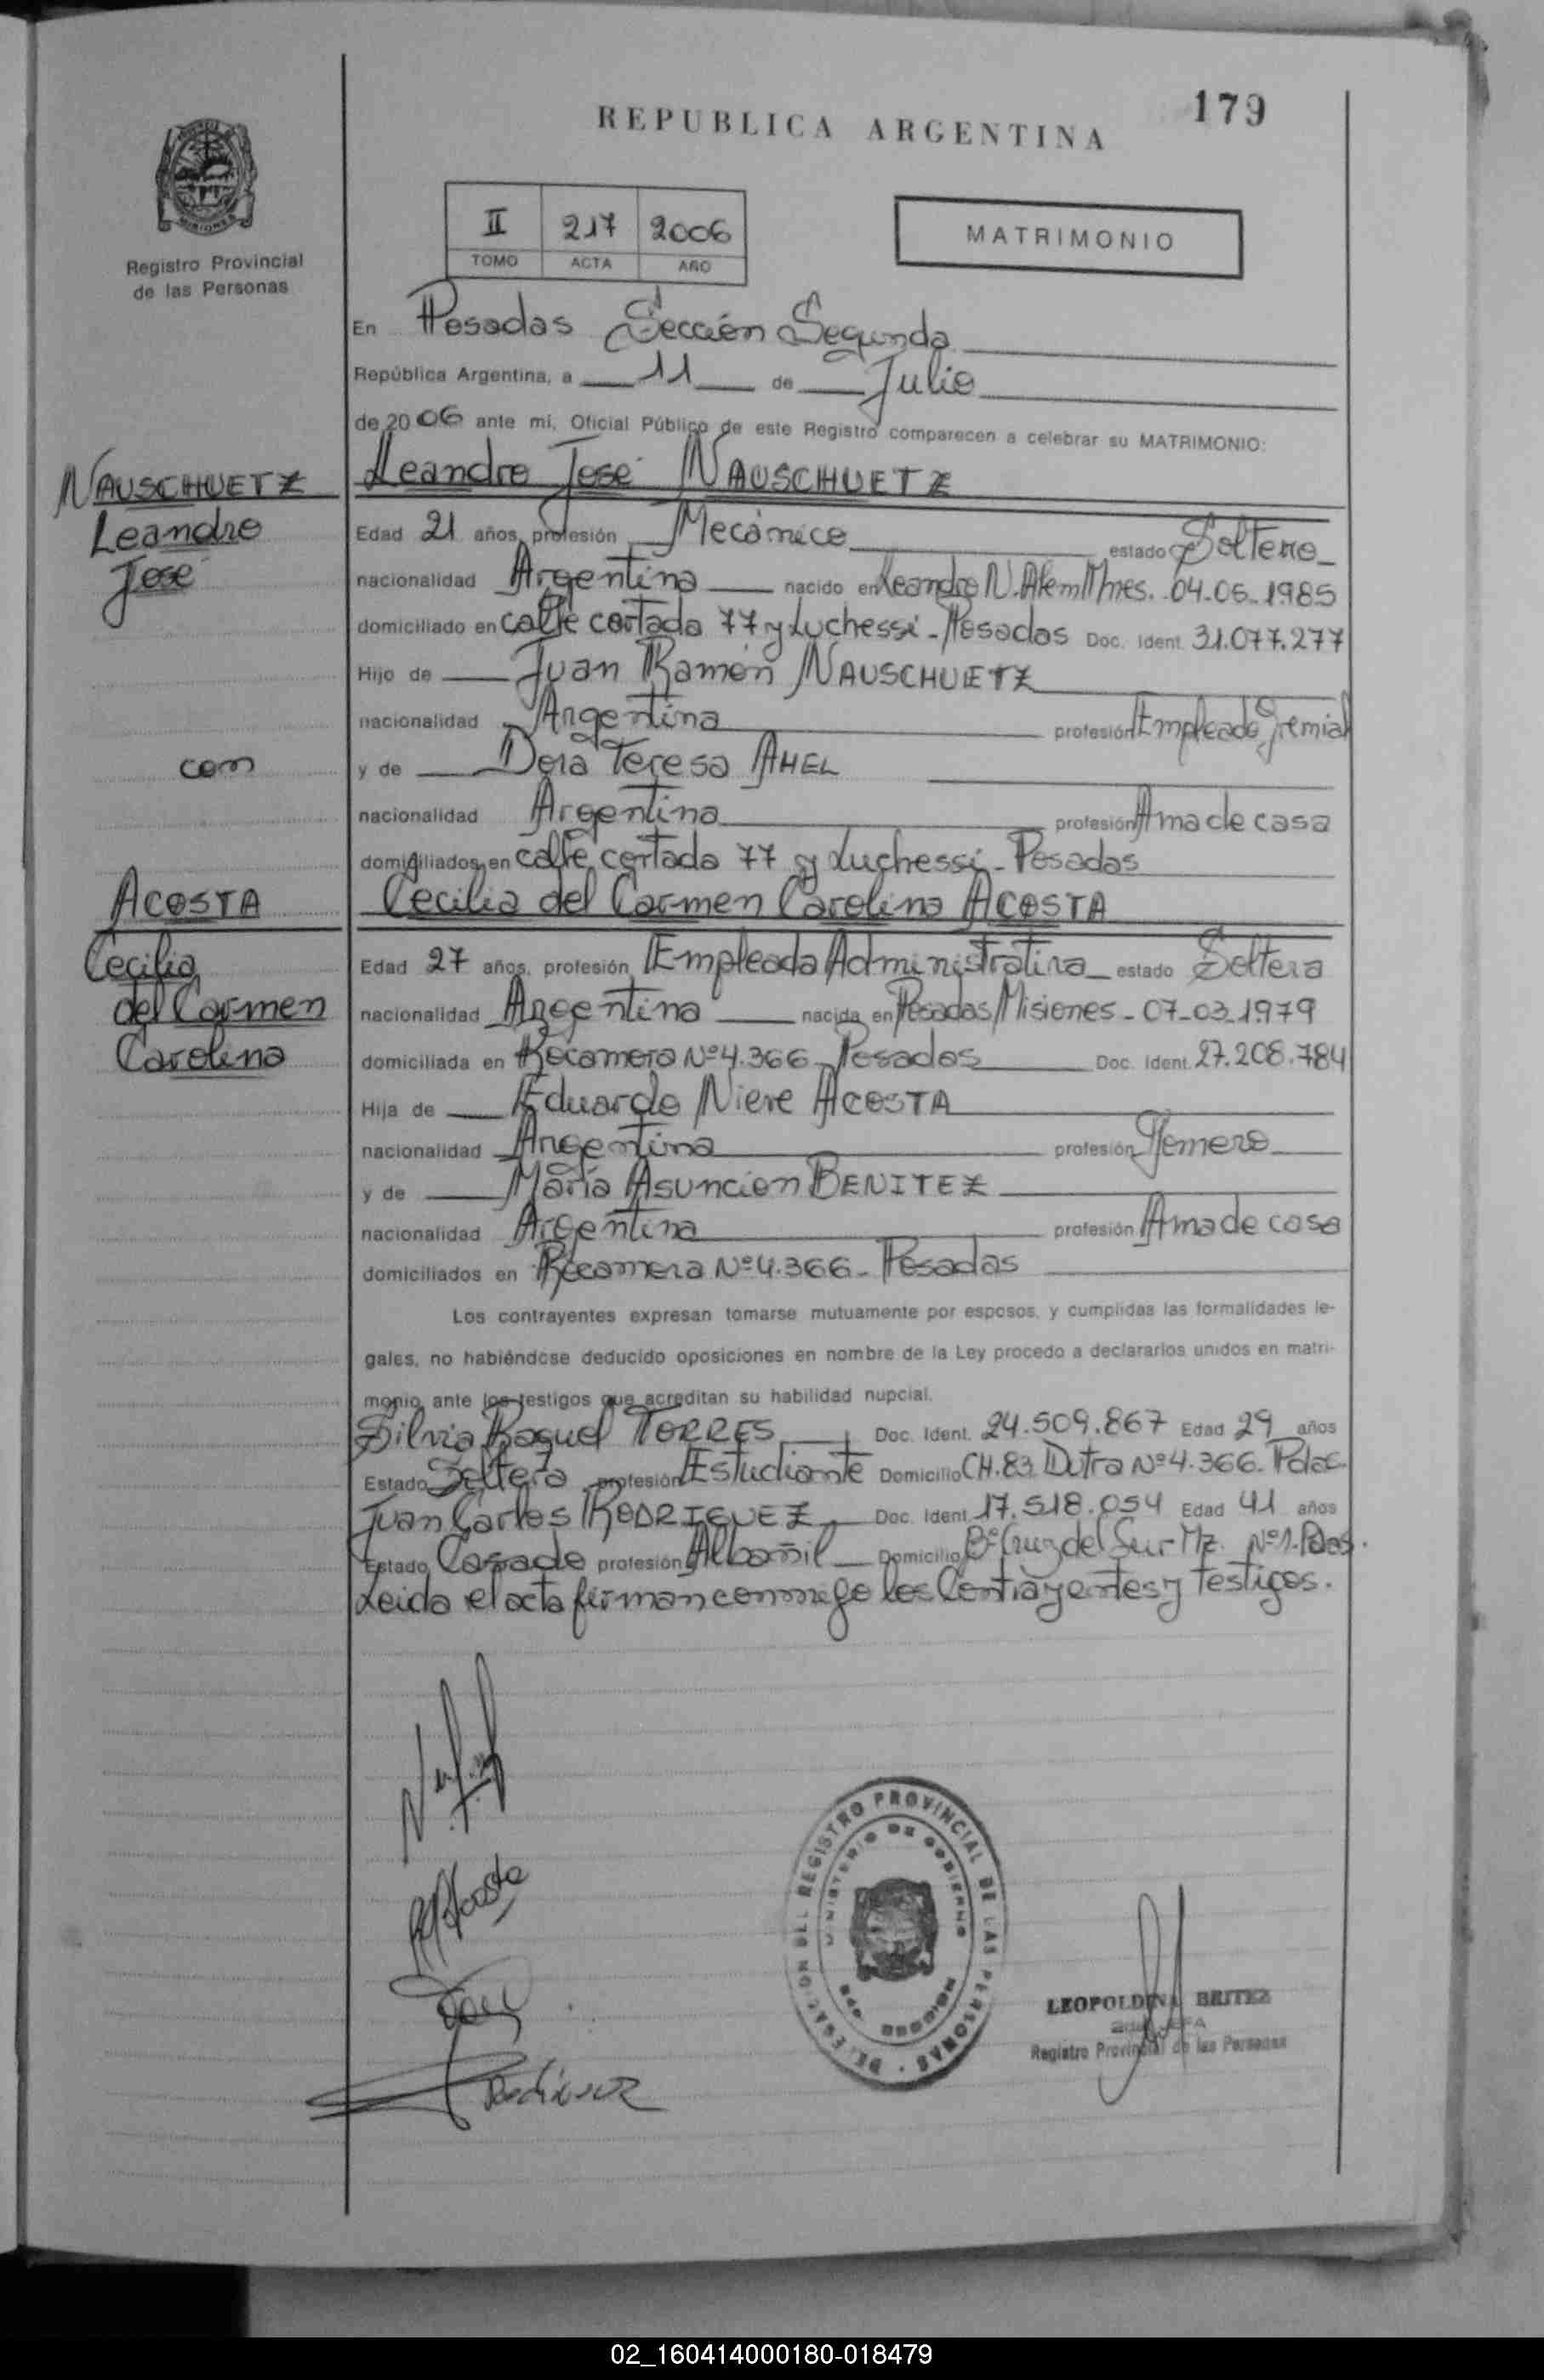 179
REPUBLICA ARGENTINA
MISIONES
Registro Provincial
de las Personas
II 217 2006
TOMO ACTA AÑO
MATRIMONIO
En Posadas Sección Segunda
República Argentina, a 11 de Julio
de 2006 ante mi, Oficial Público de este Registro comparecen a celebrar su MATRIMONIO:
NAUSCHUETZ
Leandro
José
con
ACOSTA
Cecilia
del Carmen
Carolina
Leandro José NAUSCHUETZ
Edad 21 años, profesión Mecánico estado Soltero
nacionalidad Argentina nacido en Leandro N. Alem Mnes. 04-05-1985
domiciliado en calle cortada 77 y Luchessi - Posadas Doc. Ident. 31.077.277
Hijo de Juan Ramón NAUSCHUETZ
nacionalidad Argentina profesión Empleado Gremial
y de Dora Teresa AHEL
nacionalidad Argentina profesión Ama de casa
domiciliados en calle cortada 77 y Luchessi - Posadas
Cecilia del Carmen Carolina ACOSTA
Edad 27 años, profesión Empleada Administrativa estado Soltera
nacionalidad Argentina nacida en Posadas/Misiones - 07-03-1979
domiciliada en Rocamora Nº 4.366 - Posadas Doc. Ident. 27.208.784
Hija de Eduardo Nieve ACOSTA
nacionalidad Argentina profesión
y de María Asuncion BENITEZ
nacionalidad Argentina profesión Ama de casa
domiciliados en Rocamora Nº 4.366 - Posadas
Los contrayentes expresan tomarse mutuamente por esposos, y cumplidas las formalidades le-
gales, no habiéndose deducido oposiciones en nombre de la Ley procedo a declararlos unidos en matri-
monio ante los testigos que acreditan su habilidad nupcial.
Silvia Raquel TORRES Doc. Ident. 24.509.867 Edad 29 años
Estado Soltera profesión Estudiante Domicilio CH.83 Dutra Nº 4.366. Pdas.
Juan Carlos RODRIGUEZ Doc. Ident. 17.518.054 Edad 41 años
Estado Casado profesión Albañil Domicilio Bº Cruz del Sur Mz. Nº 1. Pdas.
Leida el acta firman conmigo los Contrayentes y testigos.
DELEGACION DEL REGISTRO PROVINCIAL DE LAS PERSONAS
MINISTERIO DE GOBIERNO
LEOPOLDINA BRITEZ
Registro Provincial de las Personas
02_160414000180-018479